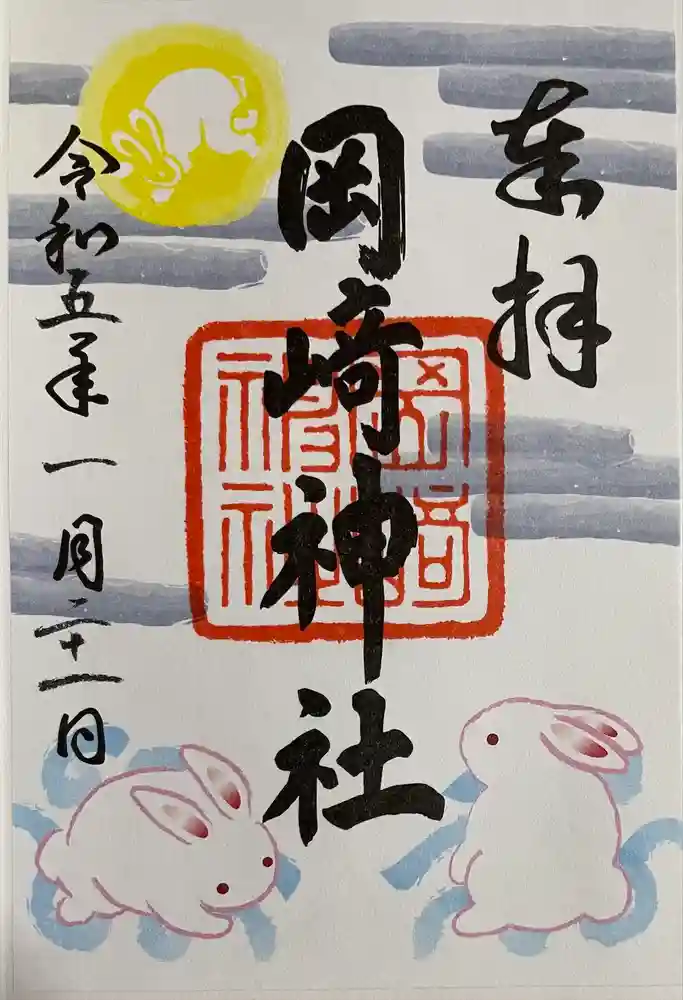 奉拝
岡崎神社
令和五年一月二十一日